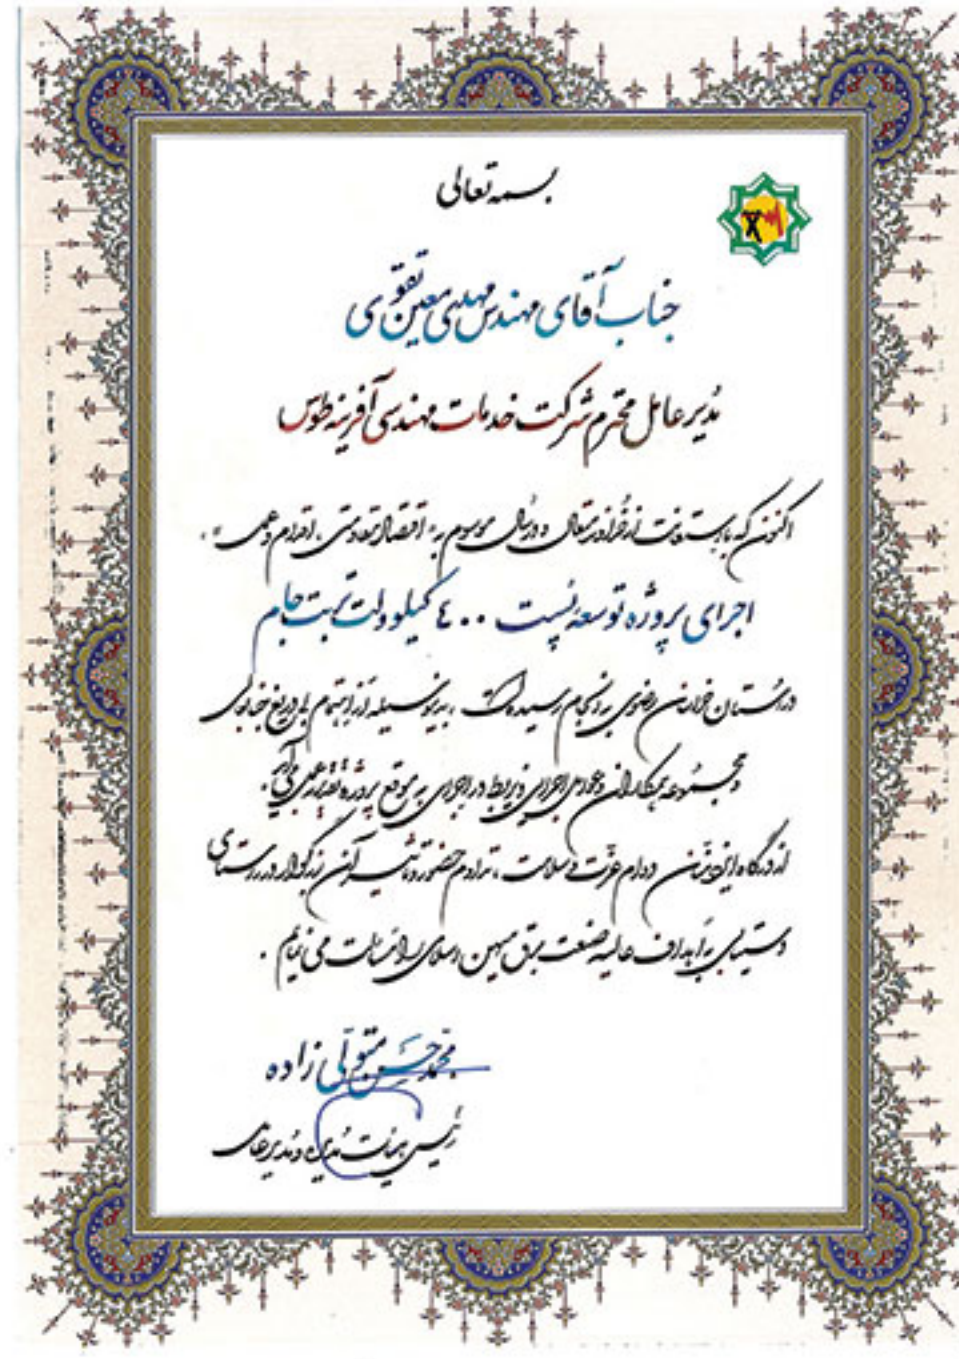 بسمه تعالی
جناب آقای مهندس مهدی معین تقوی
مدیر عامل محترم شرکت خدمات مهندسی آفرینه طوس
اکنون که با استعانت از خداوند متعال و در سال موسوم به "اقتصاد مقاومتی، اقدام و عمل"،
اجرای پروژه توسعه پست ۴۰۰ کیلوولت تربت جام
در استان خراسان رضوی به انجام رسیده است، بدینوسیله از اهتمام بی دریغ جنابعالی
و مجموعه همکاران و عوامل اجرایی ذیربط در اجرای به موقع پروژه تقدیر به عمل می آید.
از درگاه ایزد منان دوام عزت و سلامت، تداوم حضور و تاثیر آن بزرگوار در راستای
دستیابی به اهداف عالیه صنعت برق میهن اسلامی را مسالت می نمایم.
محمدحسن متولی زاده
رئیس هیئت مدیره و مدیرعامل